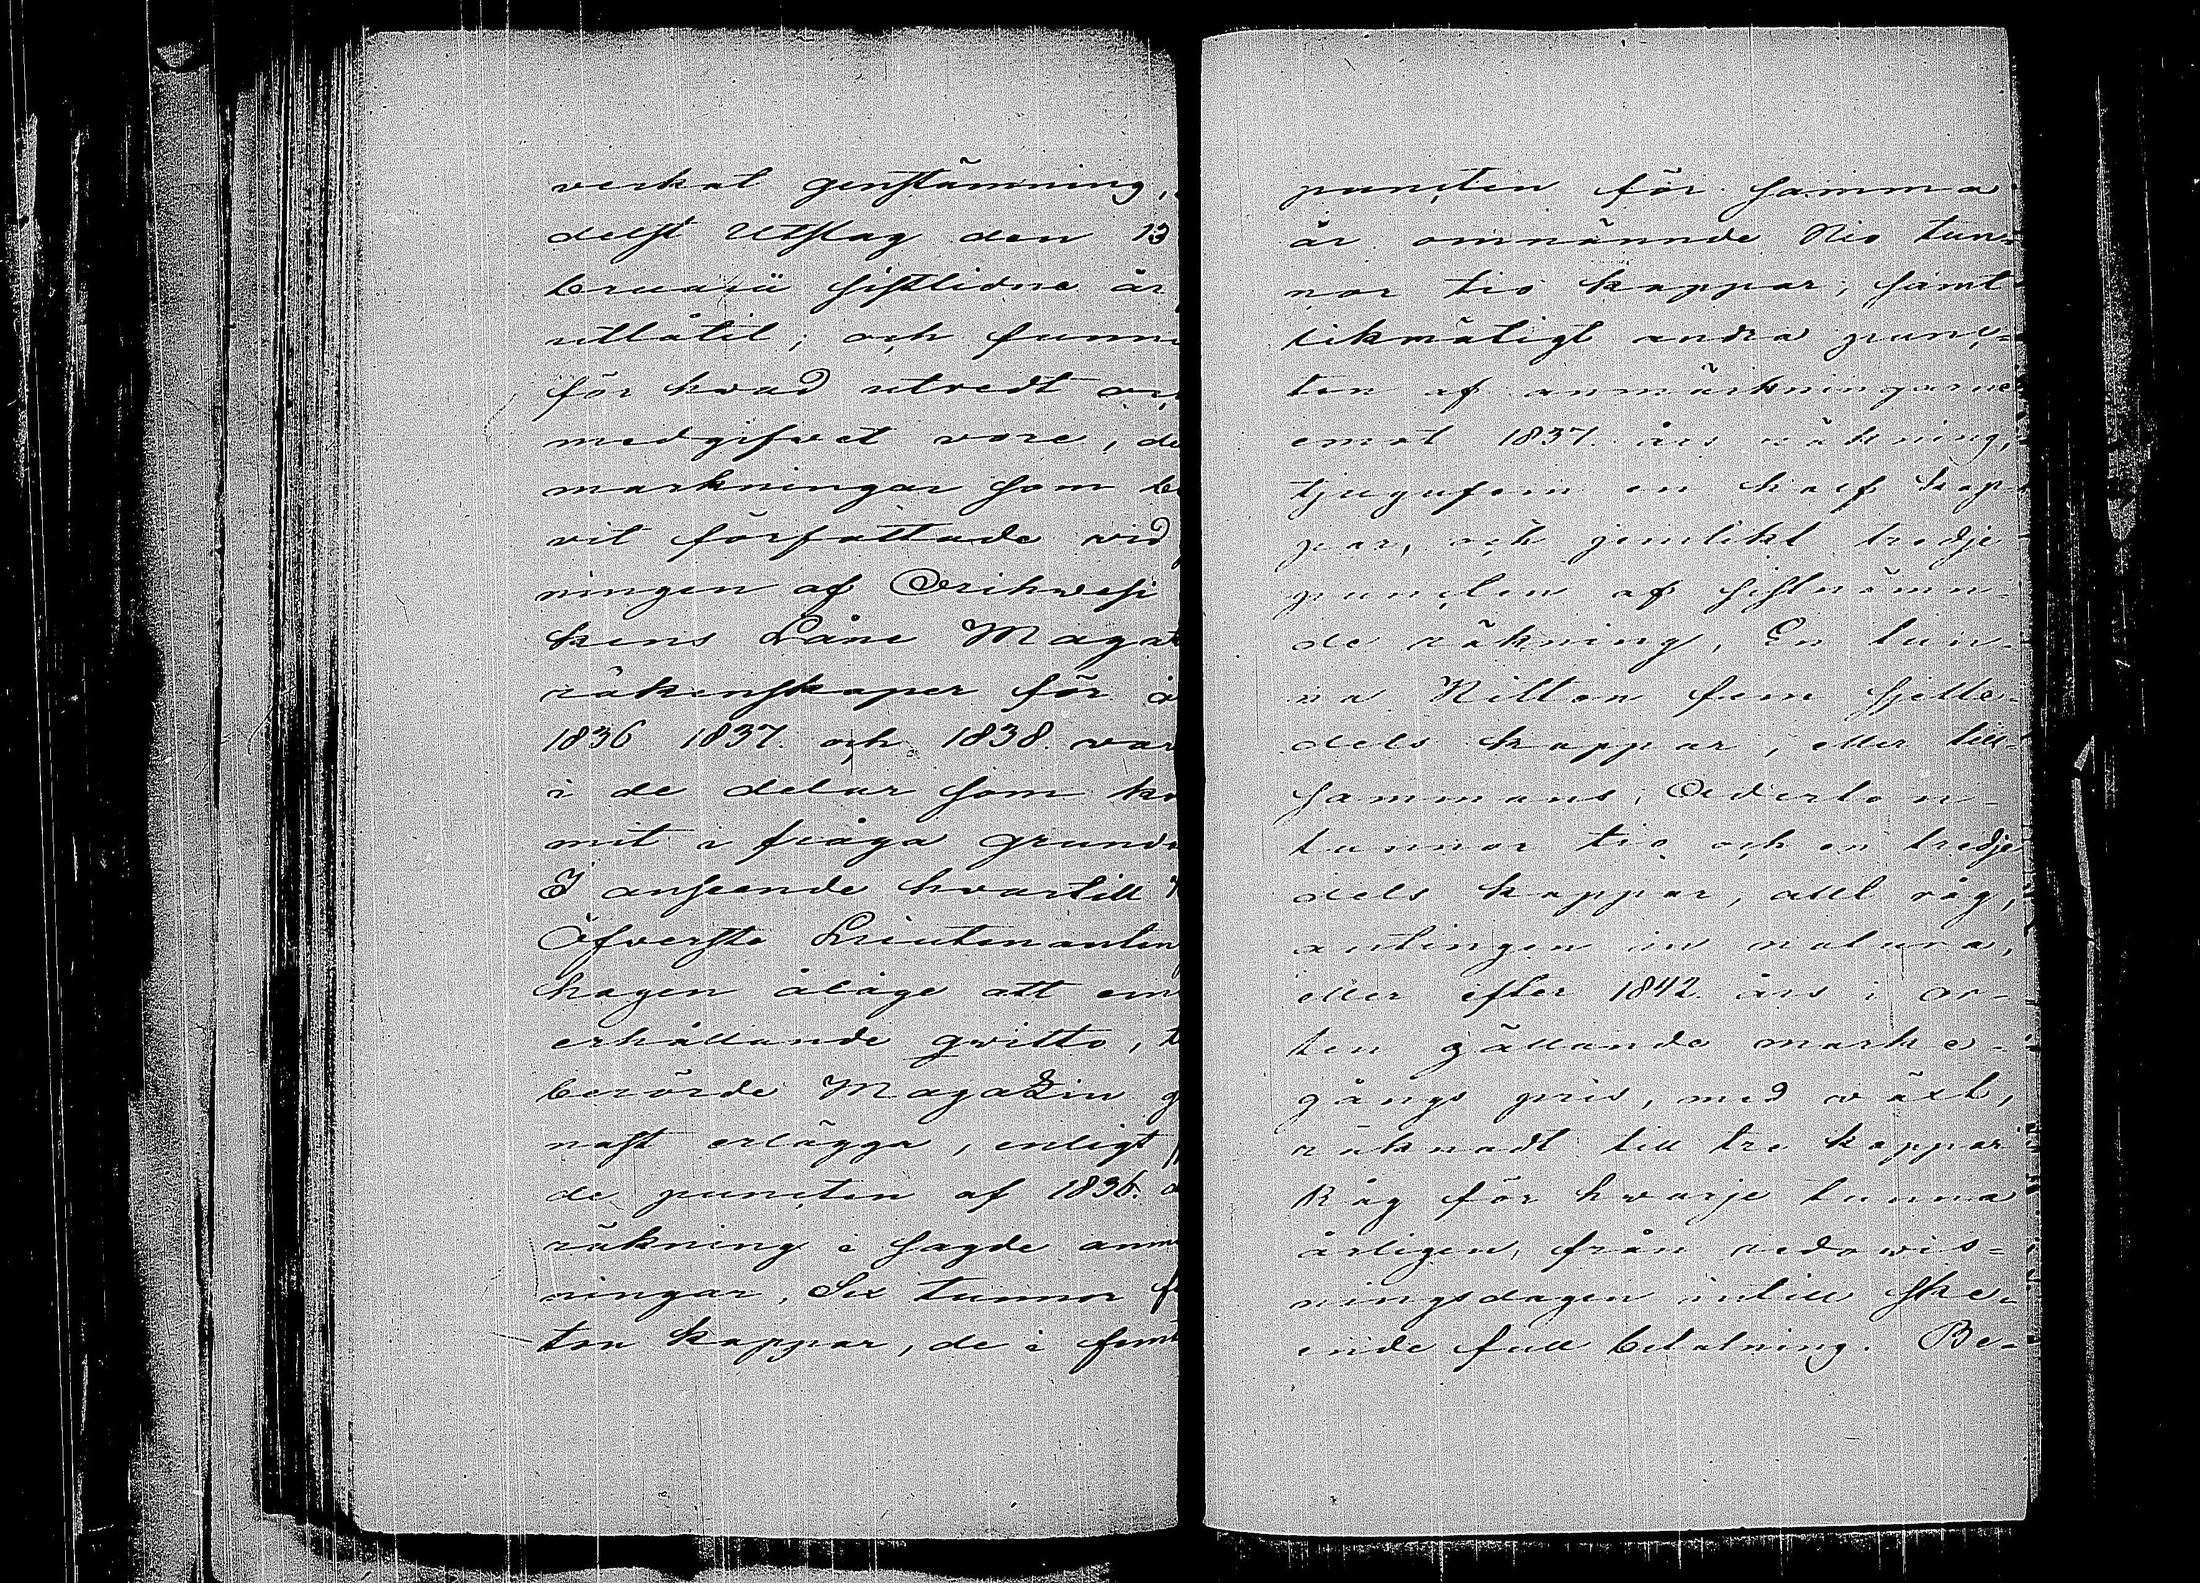 verkat genstämning,
delst Utslag den 13
bruarii sistlidne år
utlåtit; och funni
för hvad utredt oc
medgifvet vore, de
märkningar som bl
vit författade vid
ningen af Orihvesi
kens Låne Maga
räkenskaper för å
1836 1837. och 1838. var
i de delar som ko
mit i fråga grund
I anseende hvartill
Öfverste Lieutenanten
hagen ålåge att em
erhållande qvitto, t
berörde Magazin g
nast erlägga, enligt
de puncten af 1836. å
räkning i sagde anm
ningar, Sex tunnor f
ton kappar, de i femt
puncten för samma
år omnämnde Nio tun-
nor tio kappar; samt
likmätigt andra punc-
ten af anmärkningarne
emot 1837. års räkning,
tjugufem en half kap-
par, och jemlikt tredje
puncten af sistnämn-
de räkning, En tun-
na Nitton fem sjette-
dels kappar, eller till-
sammans, Aderton
tunnor tio och en tredje
dels kappar, allt råg,
antingen in natura,
eller efter 1842. års i or-
ten gällande marke-
gångs pris, med växt,
räknadt till tre kappar
Råg för hwarje tunna
årligen, från redovis-
ningsdagen intill ske-
ende full betalning. Be-